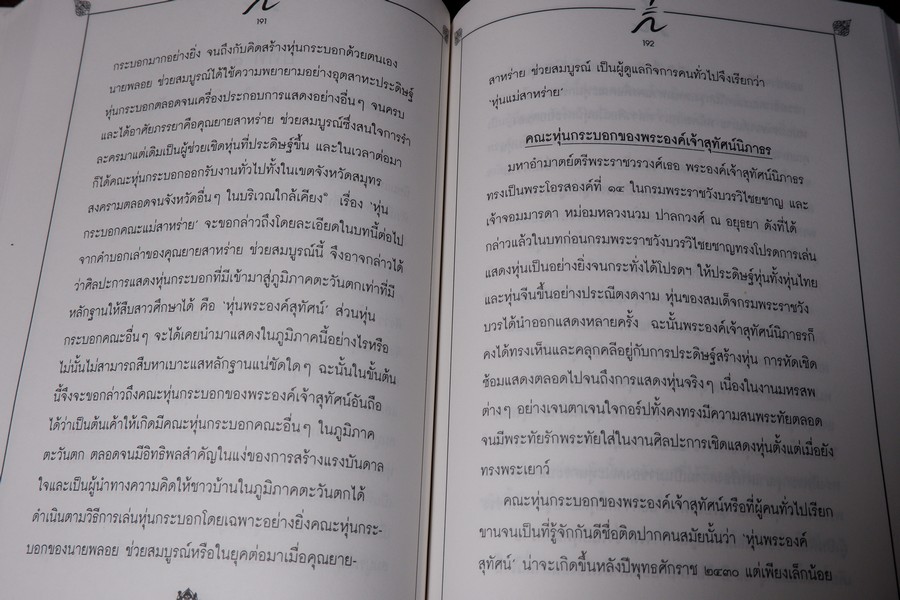 191
กระบอกมากอย่างยิ่ง จนถึงกับคิดสร้างหุ่นกระบอกด้วยตนเอง
นายพลอย ช่วยสมบูรณ์ได้ใช้ความพยายามอย่างอุตสาหะประดิษฐ์
หุ่นกระบอกตลอดจนเครื่องประกอบการแสดงอย่างอื่นๆ จนครบ
และได้อาศัยภรรยาคือคุณยายสาหร่าย ช่วยสมบูรณ์ซึ่งสนใจการรำ
ละครมาแต่เดิมเป็นผู้ช่วยเชิดหุ่นที่ประดิษฐ์ขึ้น และในเวลาต่อมา
ก็ได้คณะหุ่นกระบอกออกรับงานทั่วไปทั้งในเขตจังหวัดสมุทร
สงครามตลอดจนจังหวัดอื่นๆ ในบริเวณใกล้เคียง" เรื่อง 'หุ่น
กระบอกคณะแม่สาหร่าย' จะขอกล่าวถึงโดยละเอียดในบทนี้ต่อไป
จากคำบอกเล่าของคุณยายสาหร่าย ช่วยสมบูรณ์นี้ จึงอาจกล่าวได้
ว่าศิลปะการแสดงหุ่นกระบอกที่มีเข้ามาสู่ภูมิภาคตะวันตกเท่าที่มี
หลักฐานให้สืบสาวศึกษาได้ คือ 'หุ่นพระองค์สุทัศน์' ส่วนหุ่น
กระบอกคณะอื่นๆ จะได้เคยนำมาแสดงในภูมิภาคนี้อย่างไรหรือ
ไม่นั้นไม่สามารถสืบหาเบาะแสหลักฐานแน่ชัดใดๆ ฉะนั้นในขั้นต้น
นี้จึงจะขอกล่าวถึงคณะหุ่นกระบอกของพระองค์เจ้าสุทัศน์อันถือ
ได้ว่าเป็นต้นเค้าให้เกิดมีคณะหุ่นกระบอกคณะอื่นๆ ในภูมิภาค
ตะวันตก ตลอดจนมีอิทธิพลสำคัญในแง่ของการสร้างแรงบันดาล
ใจและเป็นผู้นำทางความคิดให้ชาวบ้านในภูมิภาคตะวันตกได้
ดำเนินตามวิธีการเล่นหุ่นกระบอกโดยเฉพาะอย่างยิ่งคณะหุ่นกระ-
บอกของนายพลอย ช่วยสมบูรณ์หรือในยุคต่อมาเมื่อคุณยาย-
192
สาหร่าย ช่วยสมบูรณ์ เป็นผู้ดูแลกิจการคนทั่วไปจึงเรียกว่า
'หุ่นแม่สาหร่าย'
คณะหุ่นกระบอกของพระองค์เจ้าสุทัศน์นิภาธร
มหาอำมาตย์ตรีพระราชวรวงศ์เธอ พระองค์เจ้าสุทัศน์นิภาธร
ทรงเป็นพระโอรสองค์ที่ ๑๔ ในกรมพระราชวังบวรวิไชยชาญ และ
เจ้าจอมมารดา หม่อมหลวงนวม ปาลกวงศ์ ณ อยุธยา ดังที่ได้
กล่าวแล้วในบทก่อนกรมพระราชวังบวรวิไชยชาญทรงโปรดการเล่น
แสดงหุ่นเป็นอย่างยิ่งจนกระทั่งได้โปรดฯ ให้ประดิษฐ์หุ่นทั้งหุ่นไทย
และหุ่นจีนขึ้นอย่างประณีตงดงาม หุ่นของสมเด็จกรมพระราชวัง
บวรได้นำออกแสดงหลายครั้ง ฉะนั้นพระองค์เจ้าสุทัศน์นิภาธรก็
คงได้ทรงเห็นและคลุกคลีอยู่กับการประดิษฐ์สร้างหุ่น การหัดเชิด
ซ้อมแสดงตลอดไปจนถึงการแสดงหุ่นจริงๆ เนื่องในงานมหรสพ
ต่างๆ อย่างเจนตาเจนใจกอร์ปทั้งคงทรงมีความสนพระทัยตลอด
จนมีพระทัยรักพระทัยใส่ในงานศิลปะการเชิดแสดงหุ่นตั้งแต่เมื่อยัง
ทรงพระเยาว์
คณะหุ่นกระบอกของพระองค์เจ้าสุทัศน์หรือที่ผู้คนทั่วไปเรียก
ขานจนเป็นที่รู้จักกันดีชื่อติดปากคนสมัยนั้นว่า 'หุ่นพระองค์
สุทัศน์' น่าจะเกิดขึ้นหลังปีพุทธศักราช ๒๔๓๐ แต่เพียงเล็กน้อย